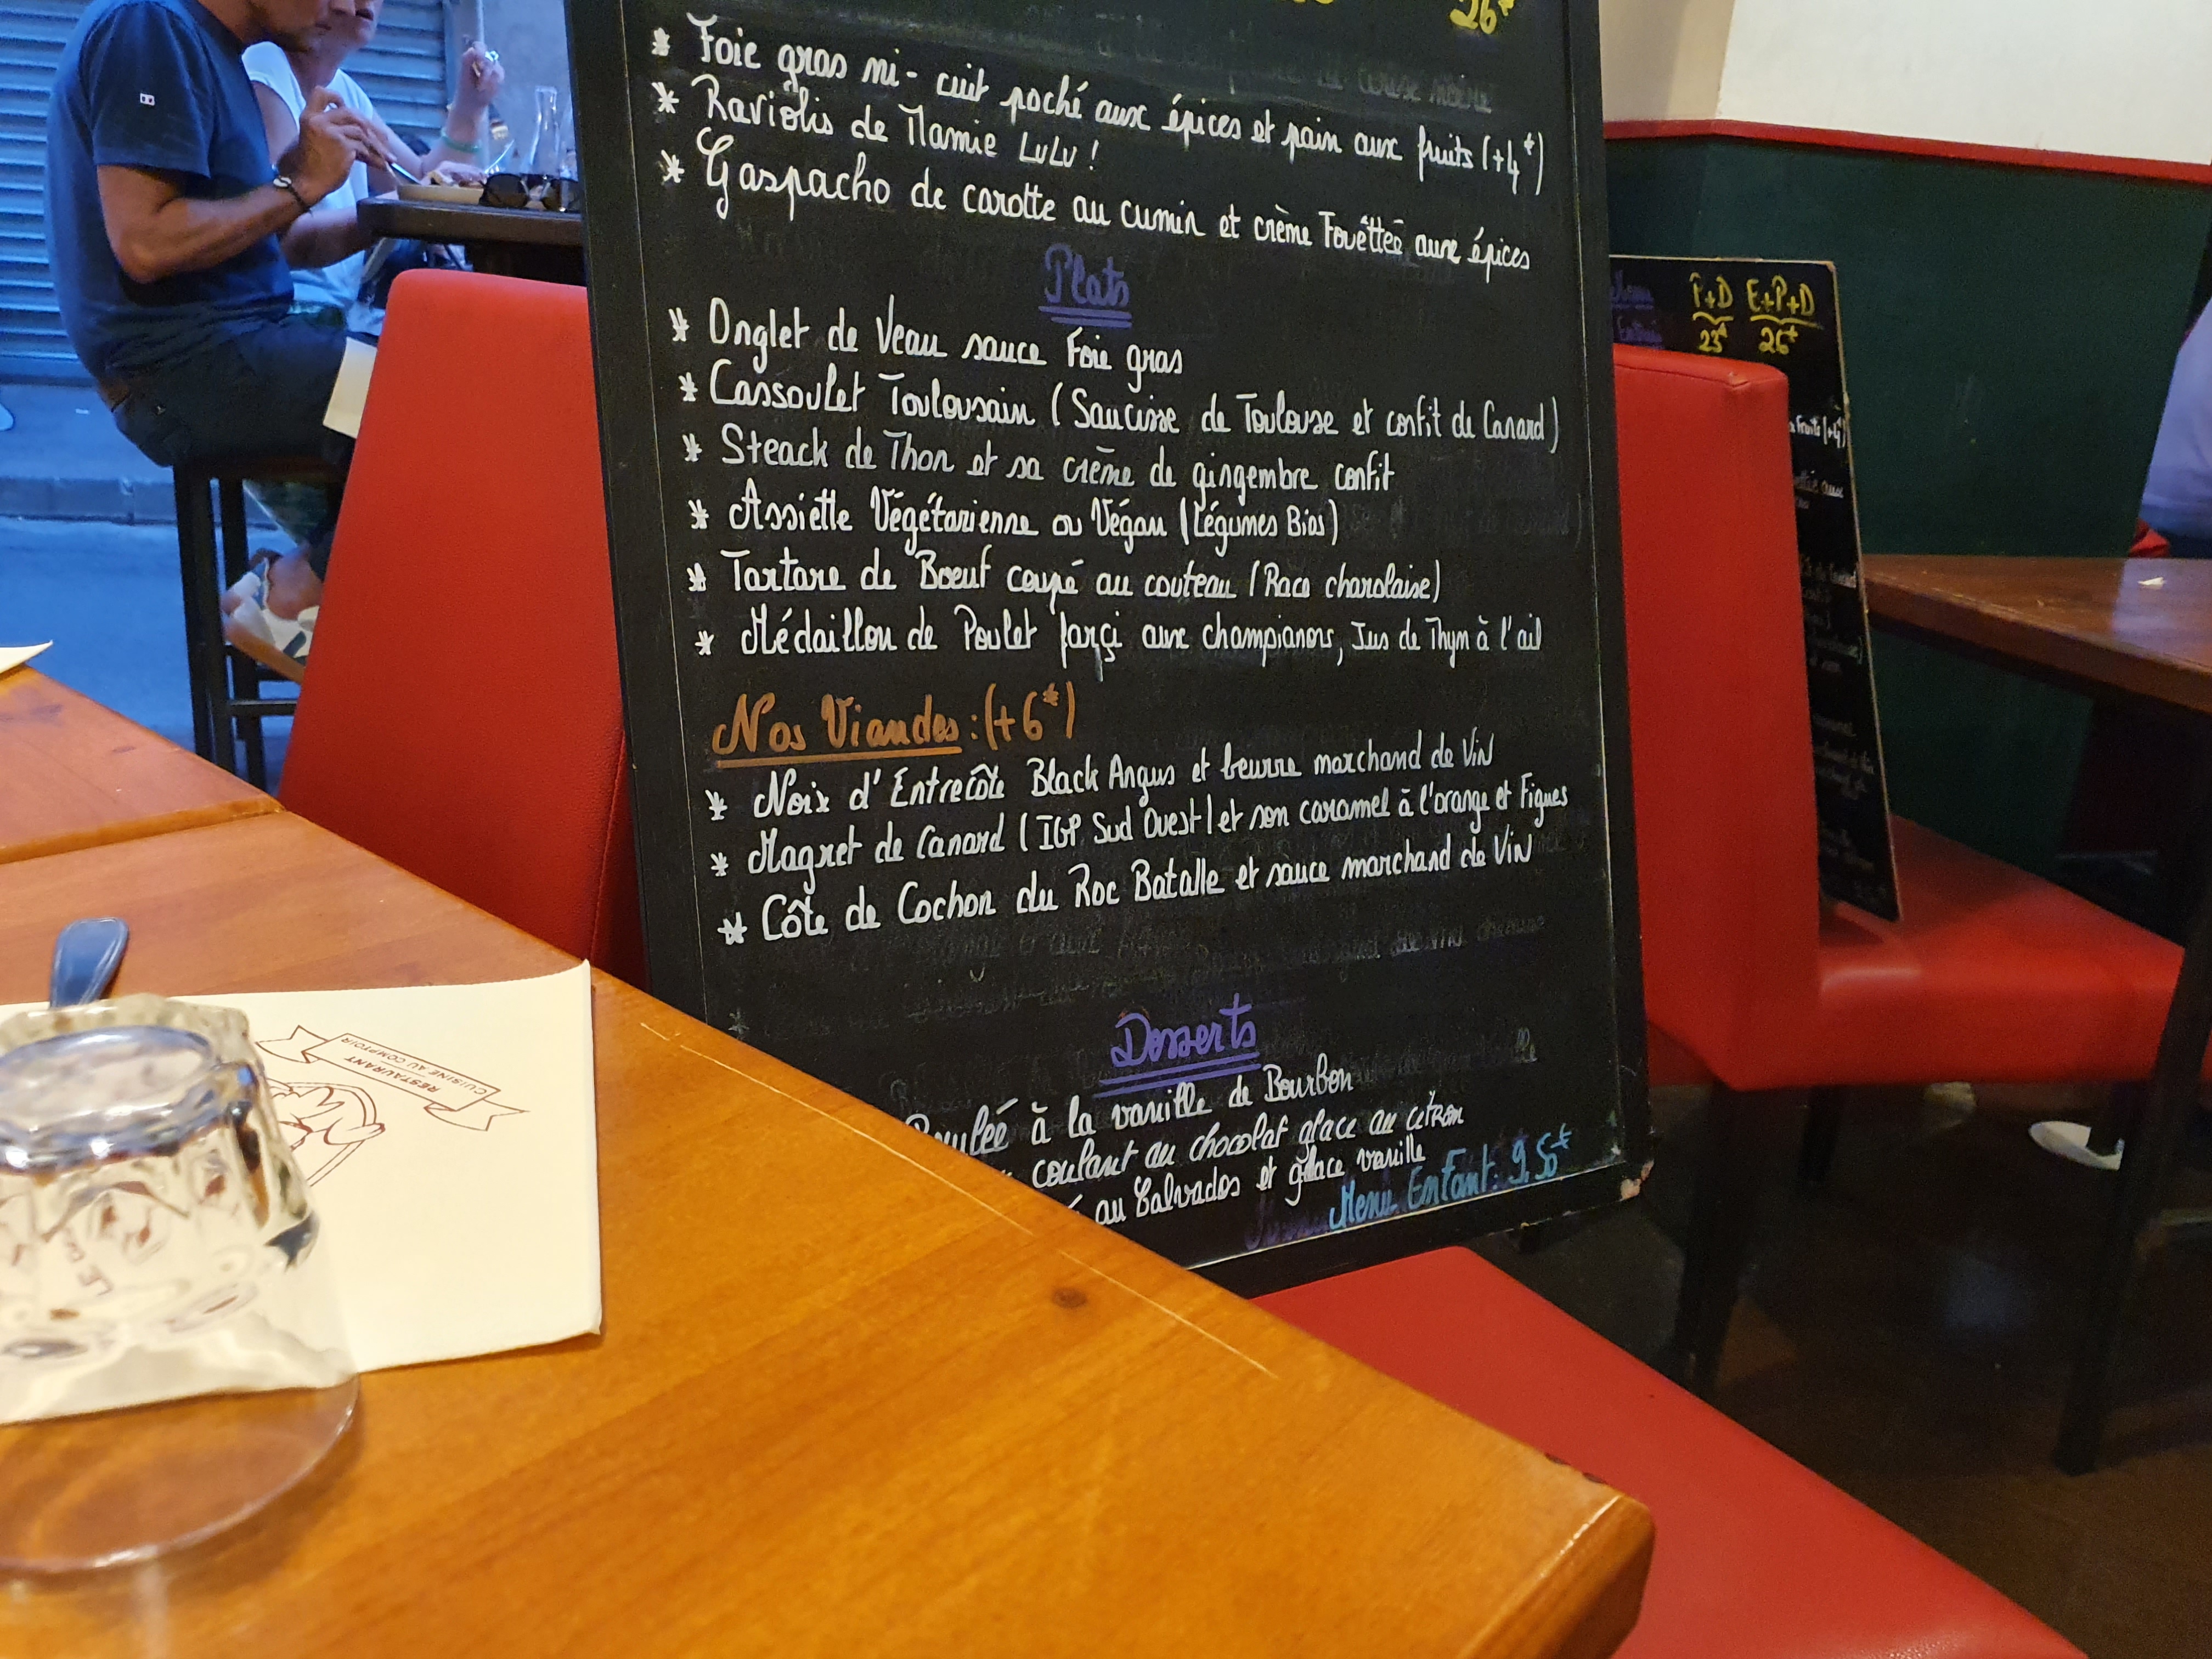 26€
* Foie gras mi-cuit poché aux épices et pain aux fruits (+4€)
* Raviolis de Mamie LuLu !
* Gaspacho de carotte au cumin et crème Fouêtteé aux épices
Plats
* Onglet de Veau sauce Foie gras
* Cassoulet Toulousain (Saucisse de Toulouse et confit de Canard)
* Steack de Thon et sa crème de gingembre confit
* Assiette Végétarienne ou Végan (Légumes Bios)
* Tartare de Bœuf coupé au couteau (Race charolaise)
* Médaillon de Poulet farçi aux champignons, Jus de Thym à l'ail
Nos Viandes : (+6€)
* Noix d'Entrecôte Black Angus et beurre marchand de Vin
* Magret de Canard (IGP Sud Ouest) et son caramel à l'orange et Figues
* Côte de Cochon du Roc Batalle et sauce marchand de Vin
Desserts
à la vanille de Bourbon
coulant au chocolat glace au citron
au Calvados et glace vanille
Menu Enfant : 9.50€
P+D E+P+D
23€ 26€
Fruits (+4€)
RESTAURANT
CUISINE AU COMPTOIR
LE